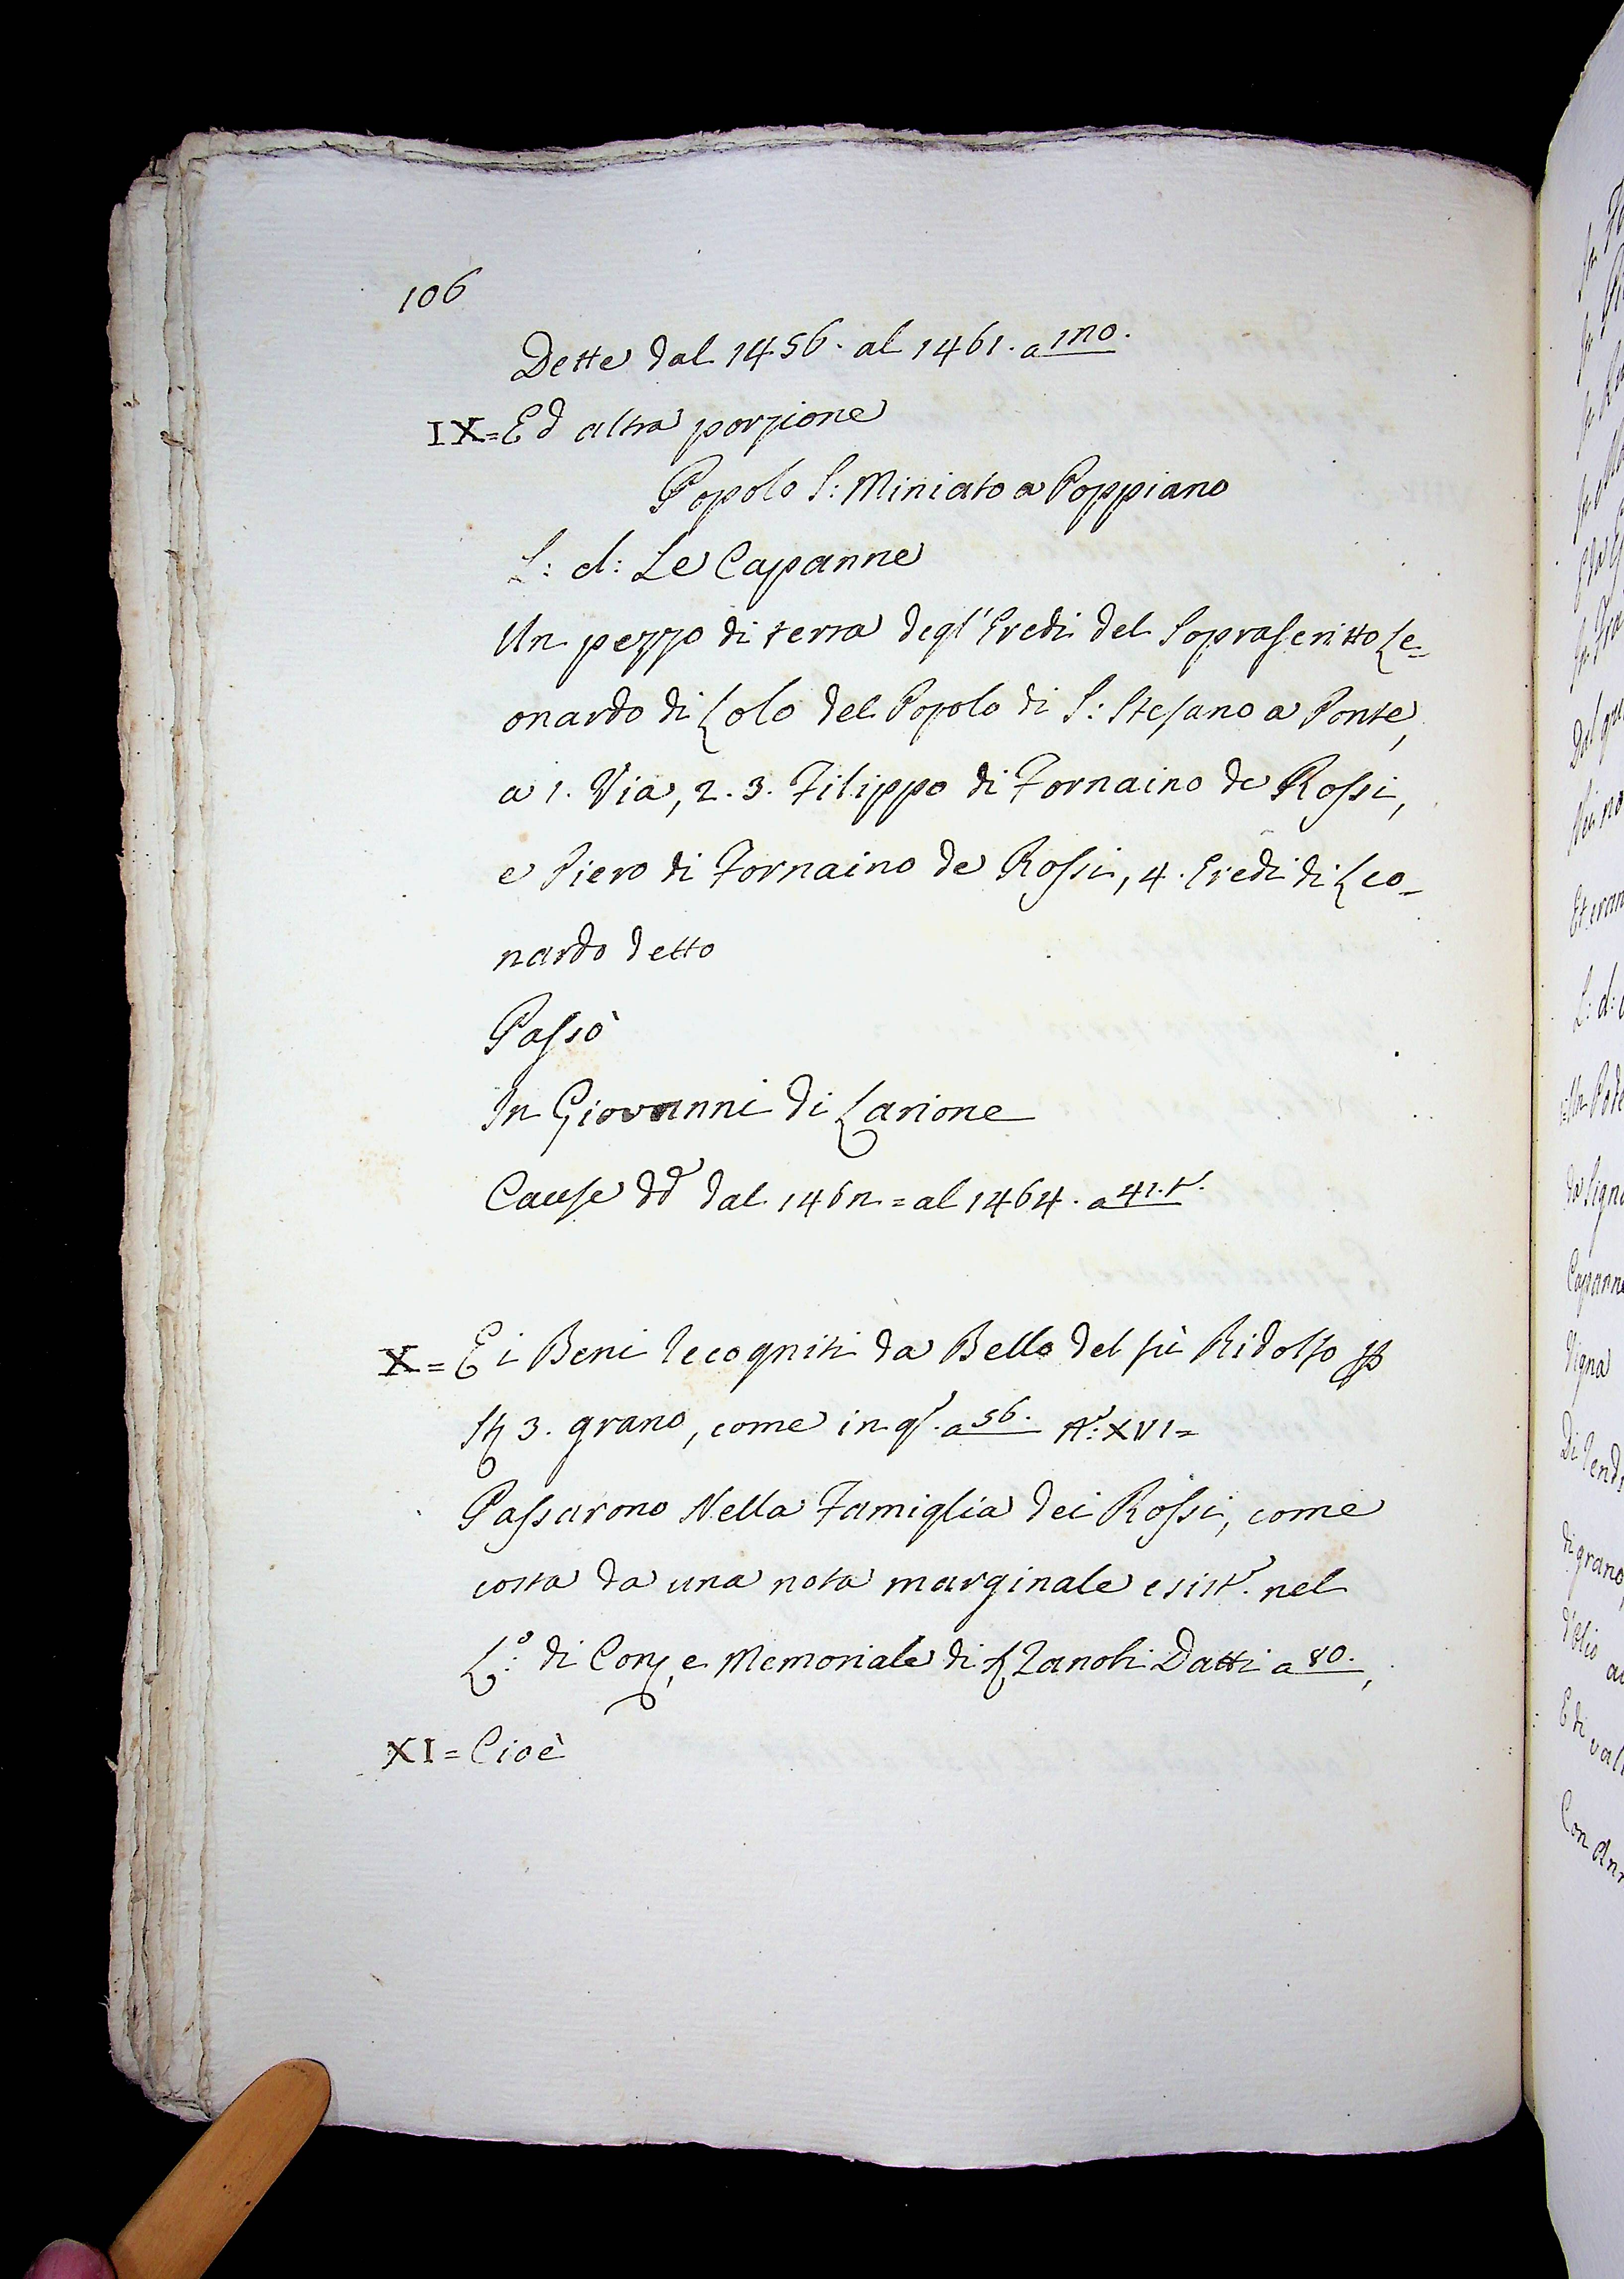 106
Dette dal 1456. al 1461. a 120.
IX= Ed altra porzione
Popolo S: Miniato a Poppiano
L: d: Le Capanne
Un pezzo di terra degl' Eredi del Soprascritto Le=
onardo di Lolo del Popolo di S: Stefano a Ponte,
a 1. Via, 2. 3. Filippo di Fornaino de Rossi,
e Piero di Fornaino de Rossi, 4. Eredi di Leo-
nardo detto
Passò
In Giovanni di Larione
Cause dd. dal 1462 = al 1464. a 41.t.
X= E i Beni recogniti da Bello del fù Ridolfo
3. grano, come in q. a 56. XVI=
Passarono Nella Famiglia dei Rossi, come
costa da una nota marginale esist. nel
L.o di Con, e Memoriale di Zanobi Datti a 80.,
XI= Cioè